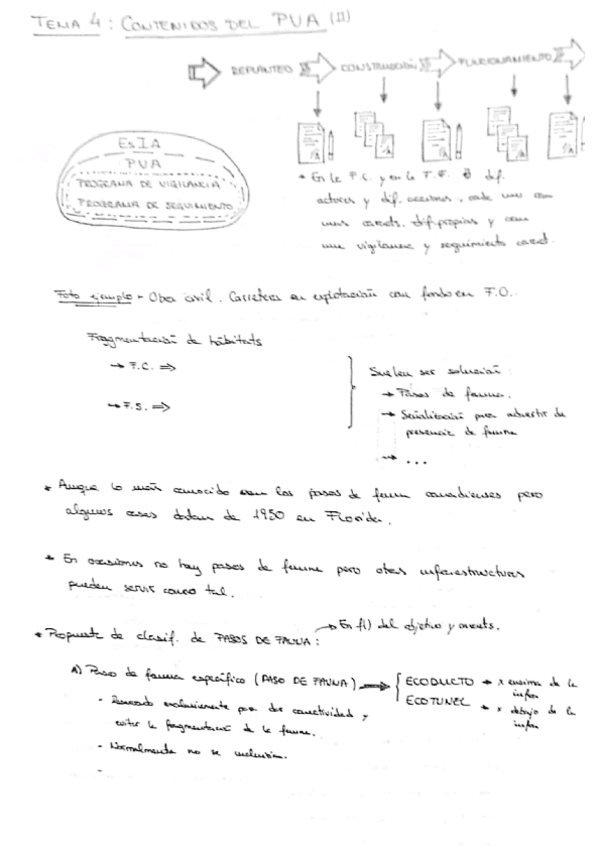 TEMA 4: CONTENIDOS DEL PVA (II)
REPLANTEO
CONSTRUCCIÓN
FUNCIONAMIENTO
EsIA
PVA
PROGRAMA DE VIGILANCIA
PROGRAMA DE SEGUIMIENTO
* En la F.C. y en la F.F. ∃ dif.
actores y dif. acciones, cada una con
unas caract. dif. propias y con
una vigilancia y seguimiento caract.
Foto ejemplo - Obra civil. Carretera en explotación con fondo en F.O.
Fragmentación de hábitats
→ F.C. ⇒
→ F.S. ⇒
Suelen ser solución:
→ Pasos de fauna.
→ Señalización para advertir de
presencia de fauna
→ ...
* Aunque lo más conocido son los pasos de fauna canadienses pero
algunos casos datan de 1950 en Florida.
* En ocasiones no hay pasos de fauna pero otras infraestructuras
pueden servir como tal.
* Propuesta de clasif. de PASOS DE FAUNA:
→ En f() del objetivo y
A) Paso de fauna específico (PASO DE FAUNA) →
ECODUCTO → x encima de la
infra
ECOTUNEL → x debajo de la
infra
- exclusivamente para dar conectividad y
evitar la fragmentació de la fauna.
- Normalmente no se
-